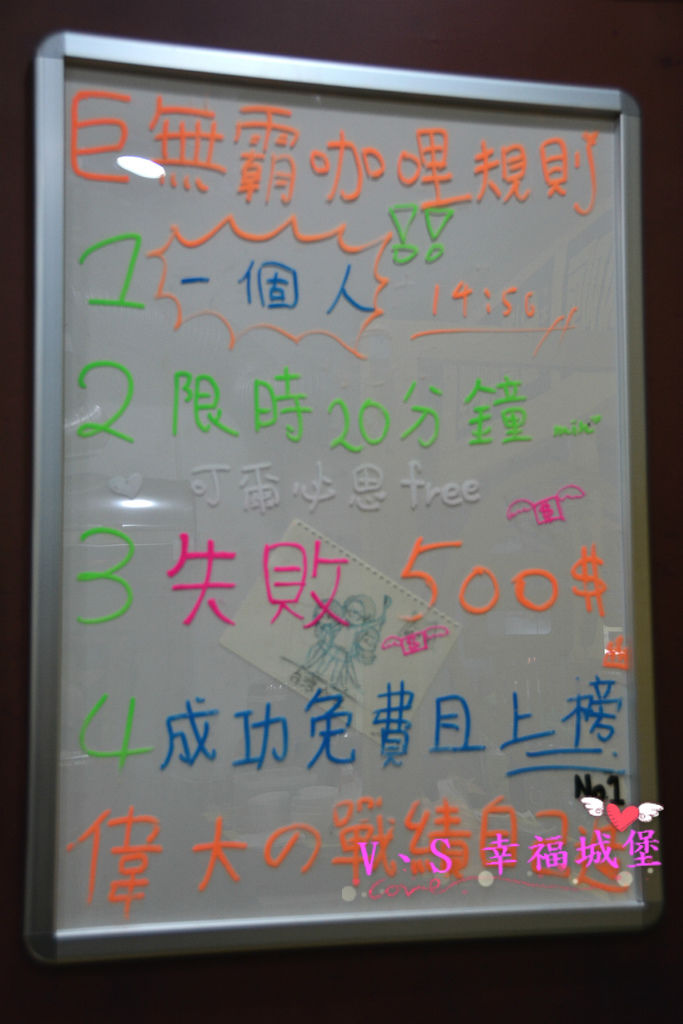 巨無霸咖哩規則
1 一個人 !! 14:56
2 限時20分鐘
可爾必思free
3 失敗 500$
4 成功免費且上榜
No.1
偉大の戰績自己造
V、S 幸福城堡
Love